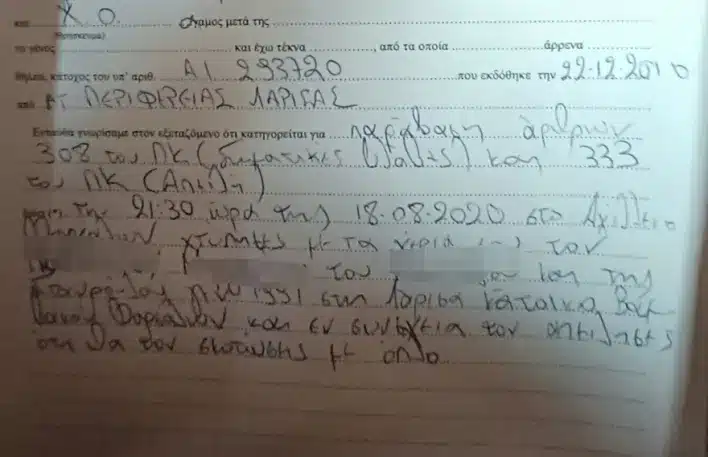 και Χ.Ο. άγαμος μετά της
(θρησκευμα)
το γένος και έχω τέκνα , από τα οποία άρρενα
θήλεα, κάτοχος του υπ' αριθ. ΑΙ 293720 που εκδόθηκε την 22-12-2010
από ΑΤ ΠΕΡΙΦΕΡΕΙΑΣ ΛΑΡΙΣΑΣ
Ενταύθα γνωρίσαμε στον εξεταζόμενο ότι κατηγορείται για παράβαση άρθρων
308 του ΠΚ (Σωματικές βλάβες) και 333
του ΠΚ (Απειλή)
την 21:30 ώρα της 18-08-2020 στο
χτύπησες με τα χέρια τον
του και της
1991 στη Λάρισα κάτοικο
Φαρσάλων και εν συνεχεία τον απείλησες
ότι θα τον σκοτώσης με όπλο